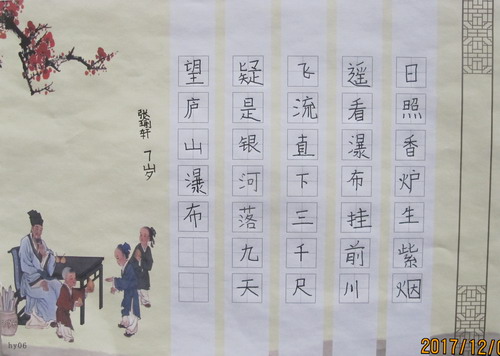 日照香炉生紫烟
遥看瀑布挂前川
飞流直下三千尺
疑是银河落九天
望庐山瀑布
7岁
hy06